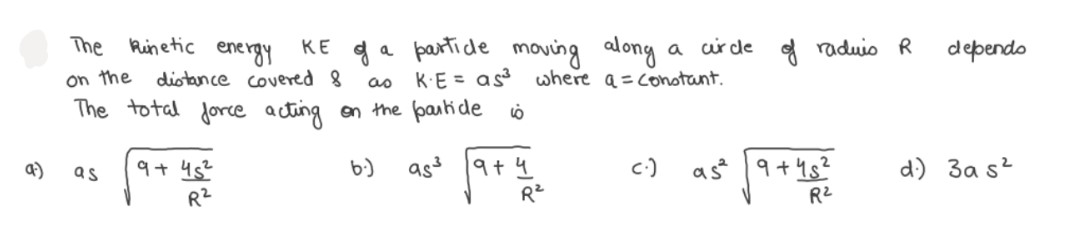 The kinetic energy KE of a particle moving along a circle of radius R depends
on the distance covered s as K·E = as³ where a = constant.
The total force acting on the particle is
a.) as √(9 + 4s²/R²) b.) as³ √(9 + 4/R²) c.) as² √(9 + 4s²/R²) d.) 3a s²